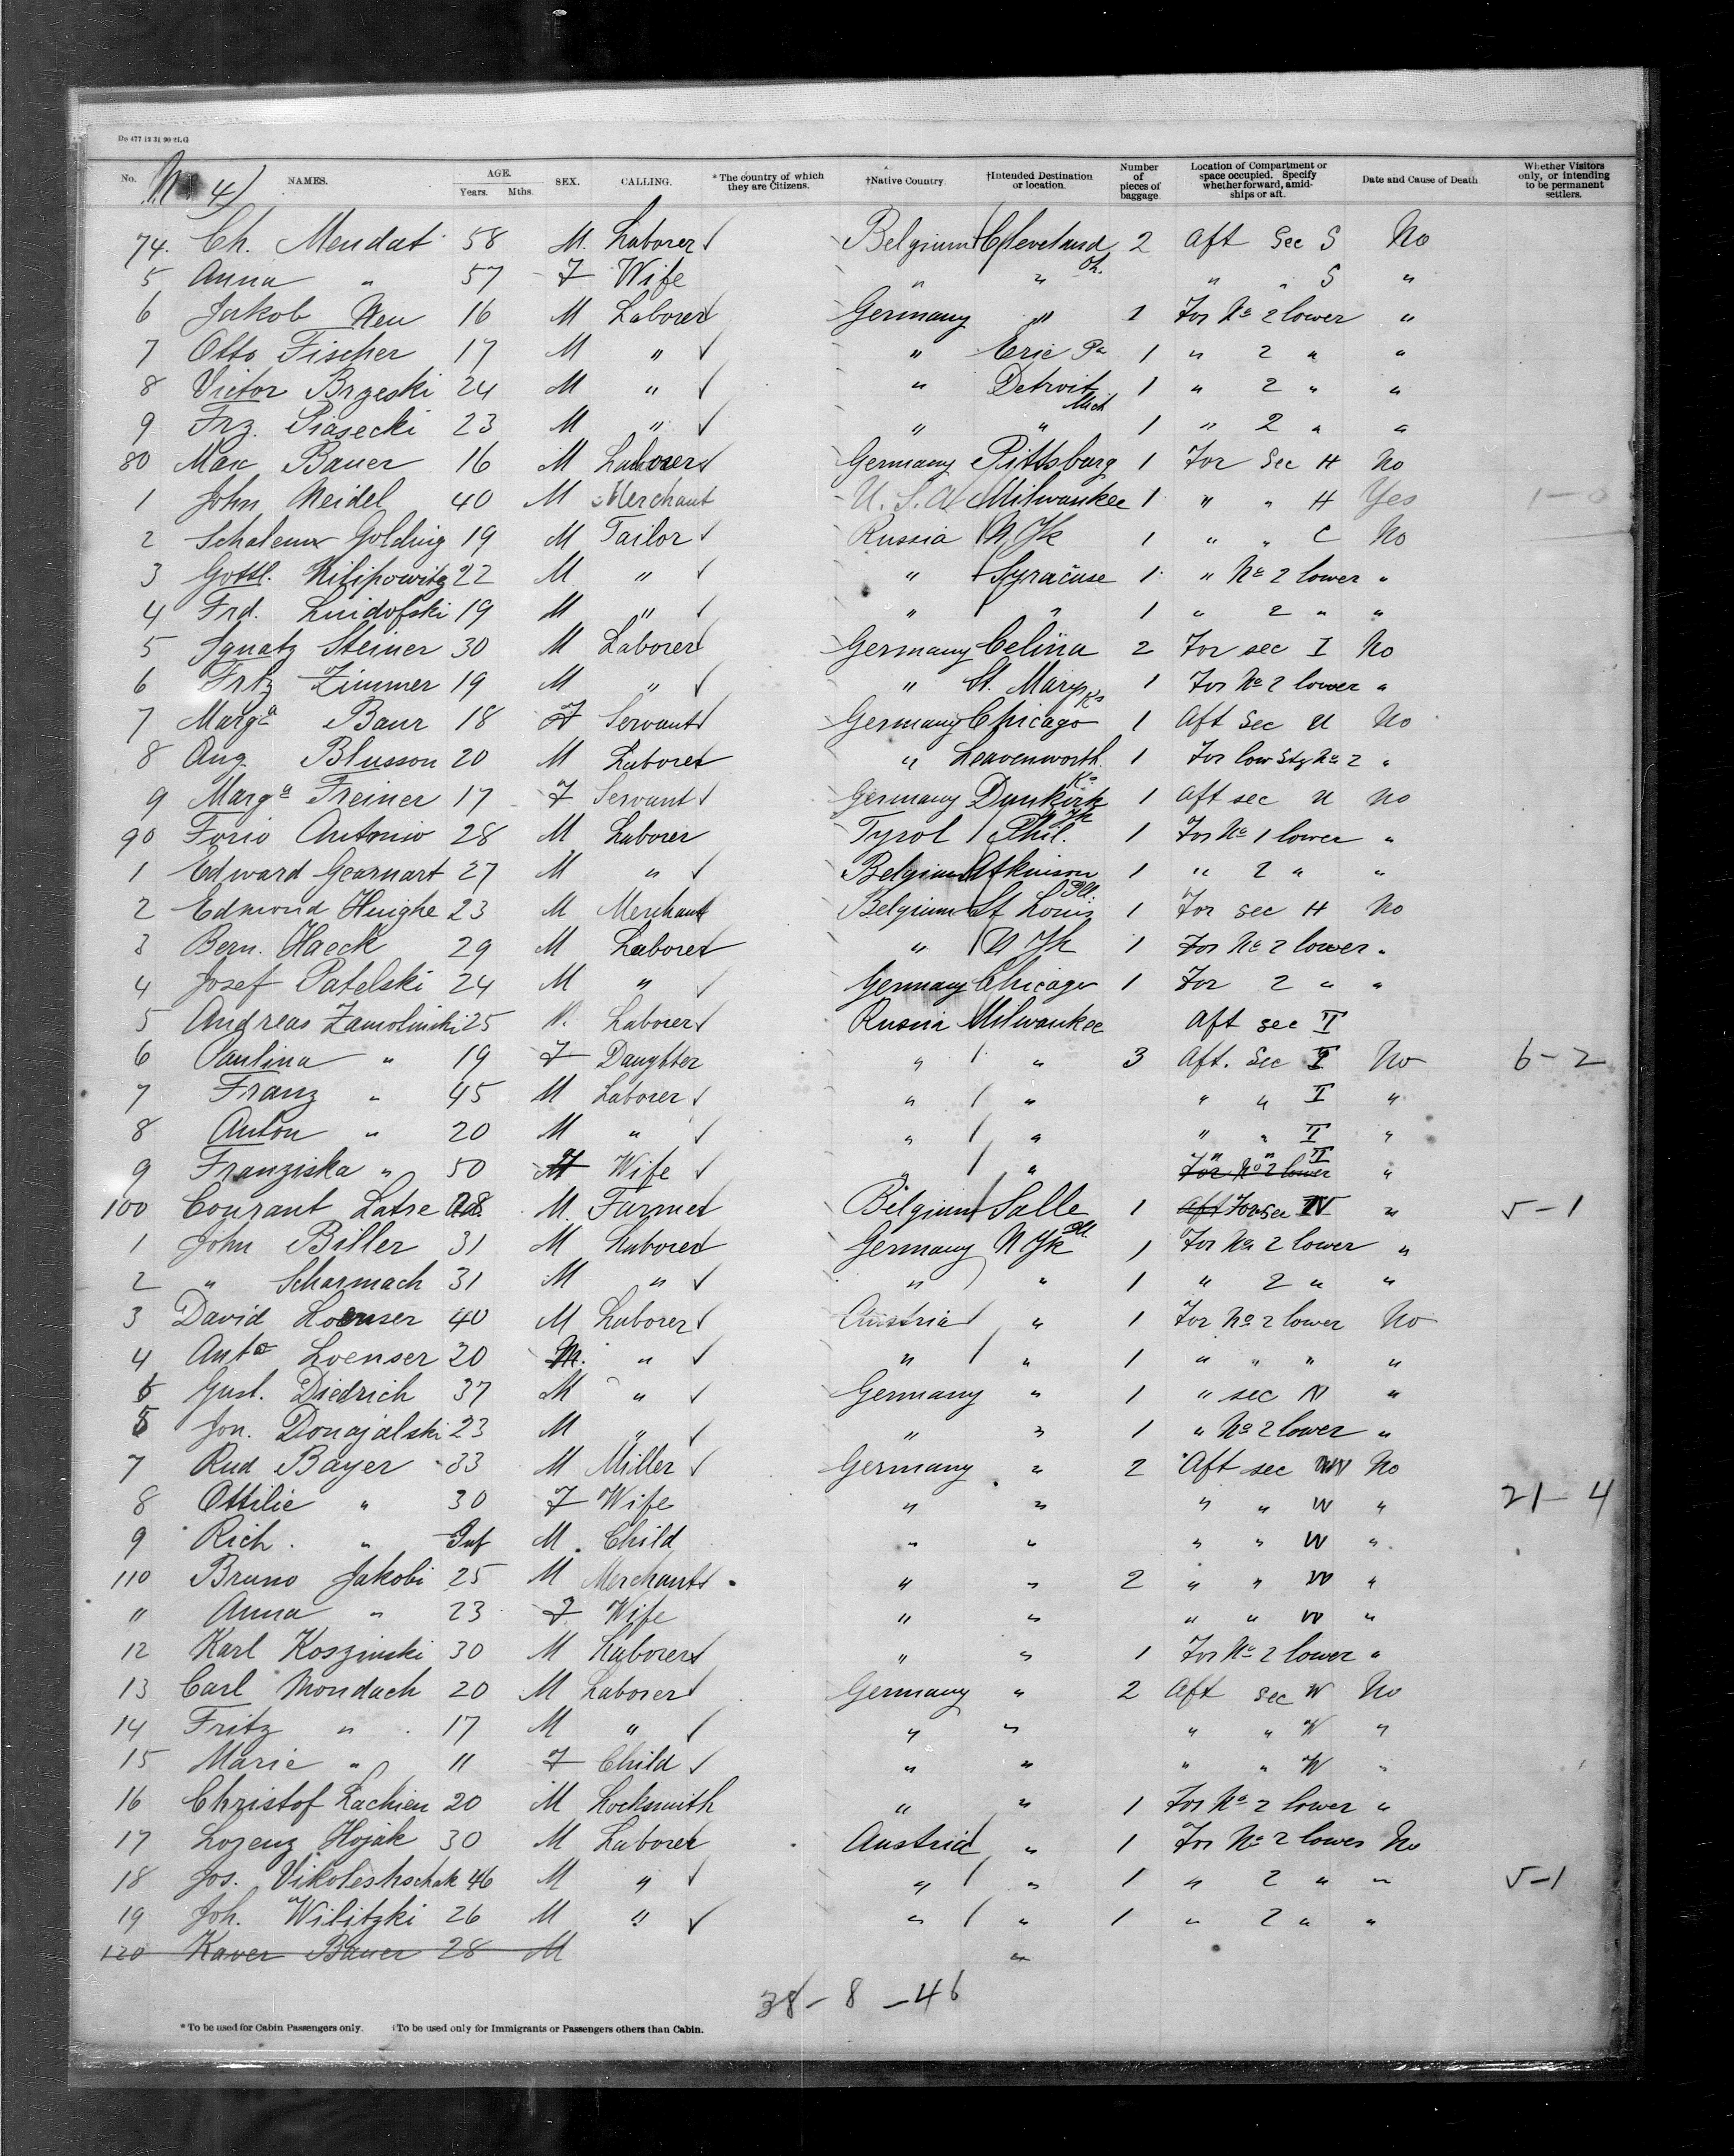 Do 477 12 31 90 2LG
No. 4)
No. NAMES. AGE. Years. Mths. SEX. CALLING. *The country of which they are Citizens. †Native Country. †Intended Destination or location. Number of pieces of baggage. Location of Compartment or space occupied. Specify whether forward, amidships or aft. Date and Cause of Death Whether Visitors only, or intending to be permanent settlers.
74. Ch. Mendat 58 M. Laborer ✓ Belgium Cleveland Oh. 2 Aft Sec S No
5 Anna " 57 F Wife " " " " S "
6 Jakob Neu 16 M Laborer ✓ Germany " 1 For No 2 lower "
7 Otto Fischer 17 M " ✓ " Erie Pa 1 " 2 " "
8 Victor Brzeski 24 M " ✓ " Detroit Mich 1 " 2 " "
9 Frz. Piasecki 23 M " ✓ " " 1 " 2 " "
80 Max Bauer 16 M Laborer ✓ Germany Pittsburg 1 For Sec H No
1 John Meidel 40 M Merchant U.S.A. Milwaukee 1 " " H Yes 1-0
2 Golding 19 M Tailor ✓ Russia N Yk 1 " " C No
3 Gottl. 22 M " ✓ " Syracuse 1 " No 2 lower "
4 Frd. 19 M " ✓ " " 1 " 2 " "
5 Ignatz Steiner 30 M Laborer ✓ Germany Celina 2 For sec I No
6 Fritz Zimmer 19 M " ✓ " St. Marys Ks 1 For No 2 lower "
7 Marga Baur 18 F Servant ✓ Germany Chicago 1 Aft Sec U No
8 Aug. Blusson 20 M Laborer " Leavenworth Ks 1 For low Stg No 2 "
9 Marga Freiner 17 F Servant ✓ Germany Dunkirk N Yk 1 Aft sec U No
90 Forio Antonio 28 M Laborer Tyrol Phil. 1 For No 1 lower "
1 Edward Gearnart 27 M " ✓ Belgium Atkinson Ill. 1 " 2 " "
2 Edmond Huighe 23 M Merchant Belgium St Louis 1 For Sec H No
3 Bern. Haeck 29 M Laborer " N Yk 1 For No 2 lower "
4 Josef Patelski 24 M " ✓ Germany Chicago 1 For 2 " "
5 Andreas Zamolinski 25 M. Laborer ✓ Russia Milwaukee Aft sec T
6 Paulina " 19 F Daughter " " 3 Aft. Sec T No 6-2
7 Franz " 45 M Laborer ✓ " " " " T "
8 Anton " 20 M " ✓ " " " " T "
9 Franziska " 50 F Wife ✓ " " For No 2 lower " " T "
100 Courant Latre 28 M. Farmer Belgium Salle Ill 1 Aft For Sec N " 5-1
1 John Biller 31 M Laborer Germany N Yk 1 For No 2 lower "
2 " Scharmach 31 M " ✓ " " 1 " 2 " "
3 David Loenser 40 M Laborer ✓ Austria " 1 For No 2 lower No
4 Anto Loenser 20 M. " ✓ " " 1 " " " "
5 Gust. Diedrich 37 M " ✓ Germany " 1 " sec N "
6 Jon. Donajalski 23 M " ✓ " " 1 " No 2 lower "
7 Rud Bayer 33 M Miller ✓ Germany " 2 Aft sec W No
8 Ottilie " 30 F Wife " " " " W " 21-4
9 Rich. " Inf M. Child " " " " W "
110 Bruno Jakobi 25 M Merchant ✓ " " 2 " " W "
11 Anna " 23 F Wife " " " " W "
12 Karl Koszinski 30 M Laborer ✓ " " 1 For No 2 lower "
13 Carl Mondach 20 M Laborer ✓ Germany " 2 Aft sec W No
14 Fritz " 17 M " ✓ " " " " W "
15 Marie " 11 F Child ✓ " " " " W "
16 Christof Lachien 20 M Locksmith " " 1 For No 2 lower "
17 Lorenz Hojak 30 M Laborer Austria " 1 For No 2 lower No
18 Jos. Vikoleshschak 46 M " ✓ " " 1 " 2 " " 5-1
19 Joh. Wilitzki 26 M " ✓ " " 1 " 2 " "
120 Xaver Bauer 28 M "
38-8-46
*To be used for Cabin Passengers only. †To be used only for Immigrants or Passengers others than Cabin.